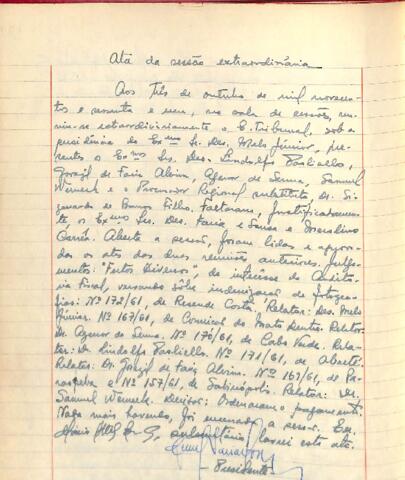 Ata da sessão extraordinária
Aos três de outubro de mil novecen-
tos e sessenta e um, na sala de sessões, reu-
niu-se extraordinàriamente o E. Tribunal, sob a
presidência do Exmo Sr. Des. Melo Júnior, pre-
sentes os Exmos Srs. Des. Lindolfo Paoliello,
Gorazil de Faria Alvim, Agenor de Senna, Samuel
Werneck e o Procurador Regional substituto, Dr. Si
de Barros Filho. Faltaram, justificadamen-
te os Exmos Srs. Des. Faria e Sousa e Marcelino
Aberta a sessão, foram lidas e aprova-
das as atas das duas reuniões anteriores. Julga-
mentos: "Feitos Diversos", de interesse da Audito-
ria Fiscal, versando sôbre indenização de fotogra-
fias: Nº 172/61, de Resende Costa. Relator: Des. Melo
Júnior. Nº 167/61, de Conceição do Mato Dentro. Relator:
Dr. Agenor de Senna. Nº 170/61, de Cabo Verde. Rela-
tor: Dr. Lindolfo Paoliello. Nº 171/61, de Abaeté.
Relator: Dr. Gorazil de Faria Alvim. Nº 163/61, de Pa-
e Nº 157/61, de Sabinópolis. Relator: Dr.
Samuel Werneck. Decisão: Ordenaram o pagamento.
Nada mais havendo, foi encerrada a sessão. Eu,
secretário lavrei esta ata.
- Presidente -